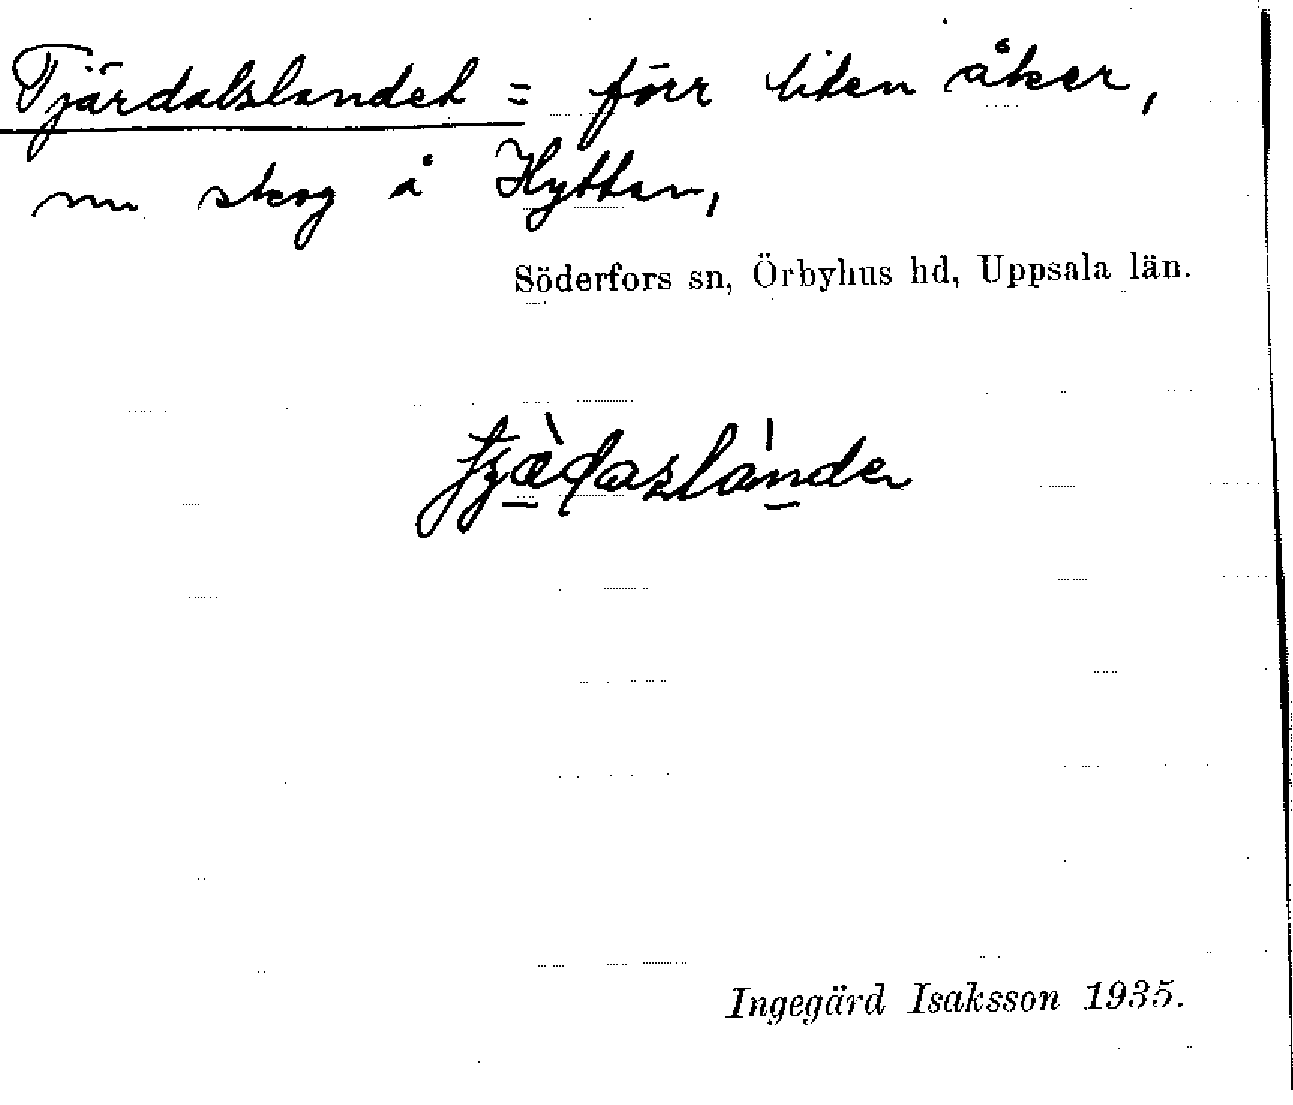 Tjärdalslandet = förr liten åker,
nu skog å Hyttan,
Söderfors sn, Örbyhus hd, Uppsala län.
Ingegärd Isaksson 1935.